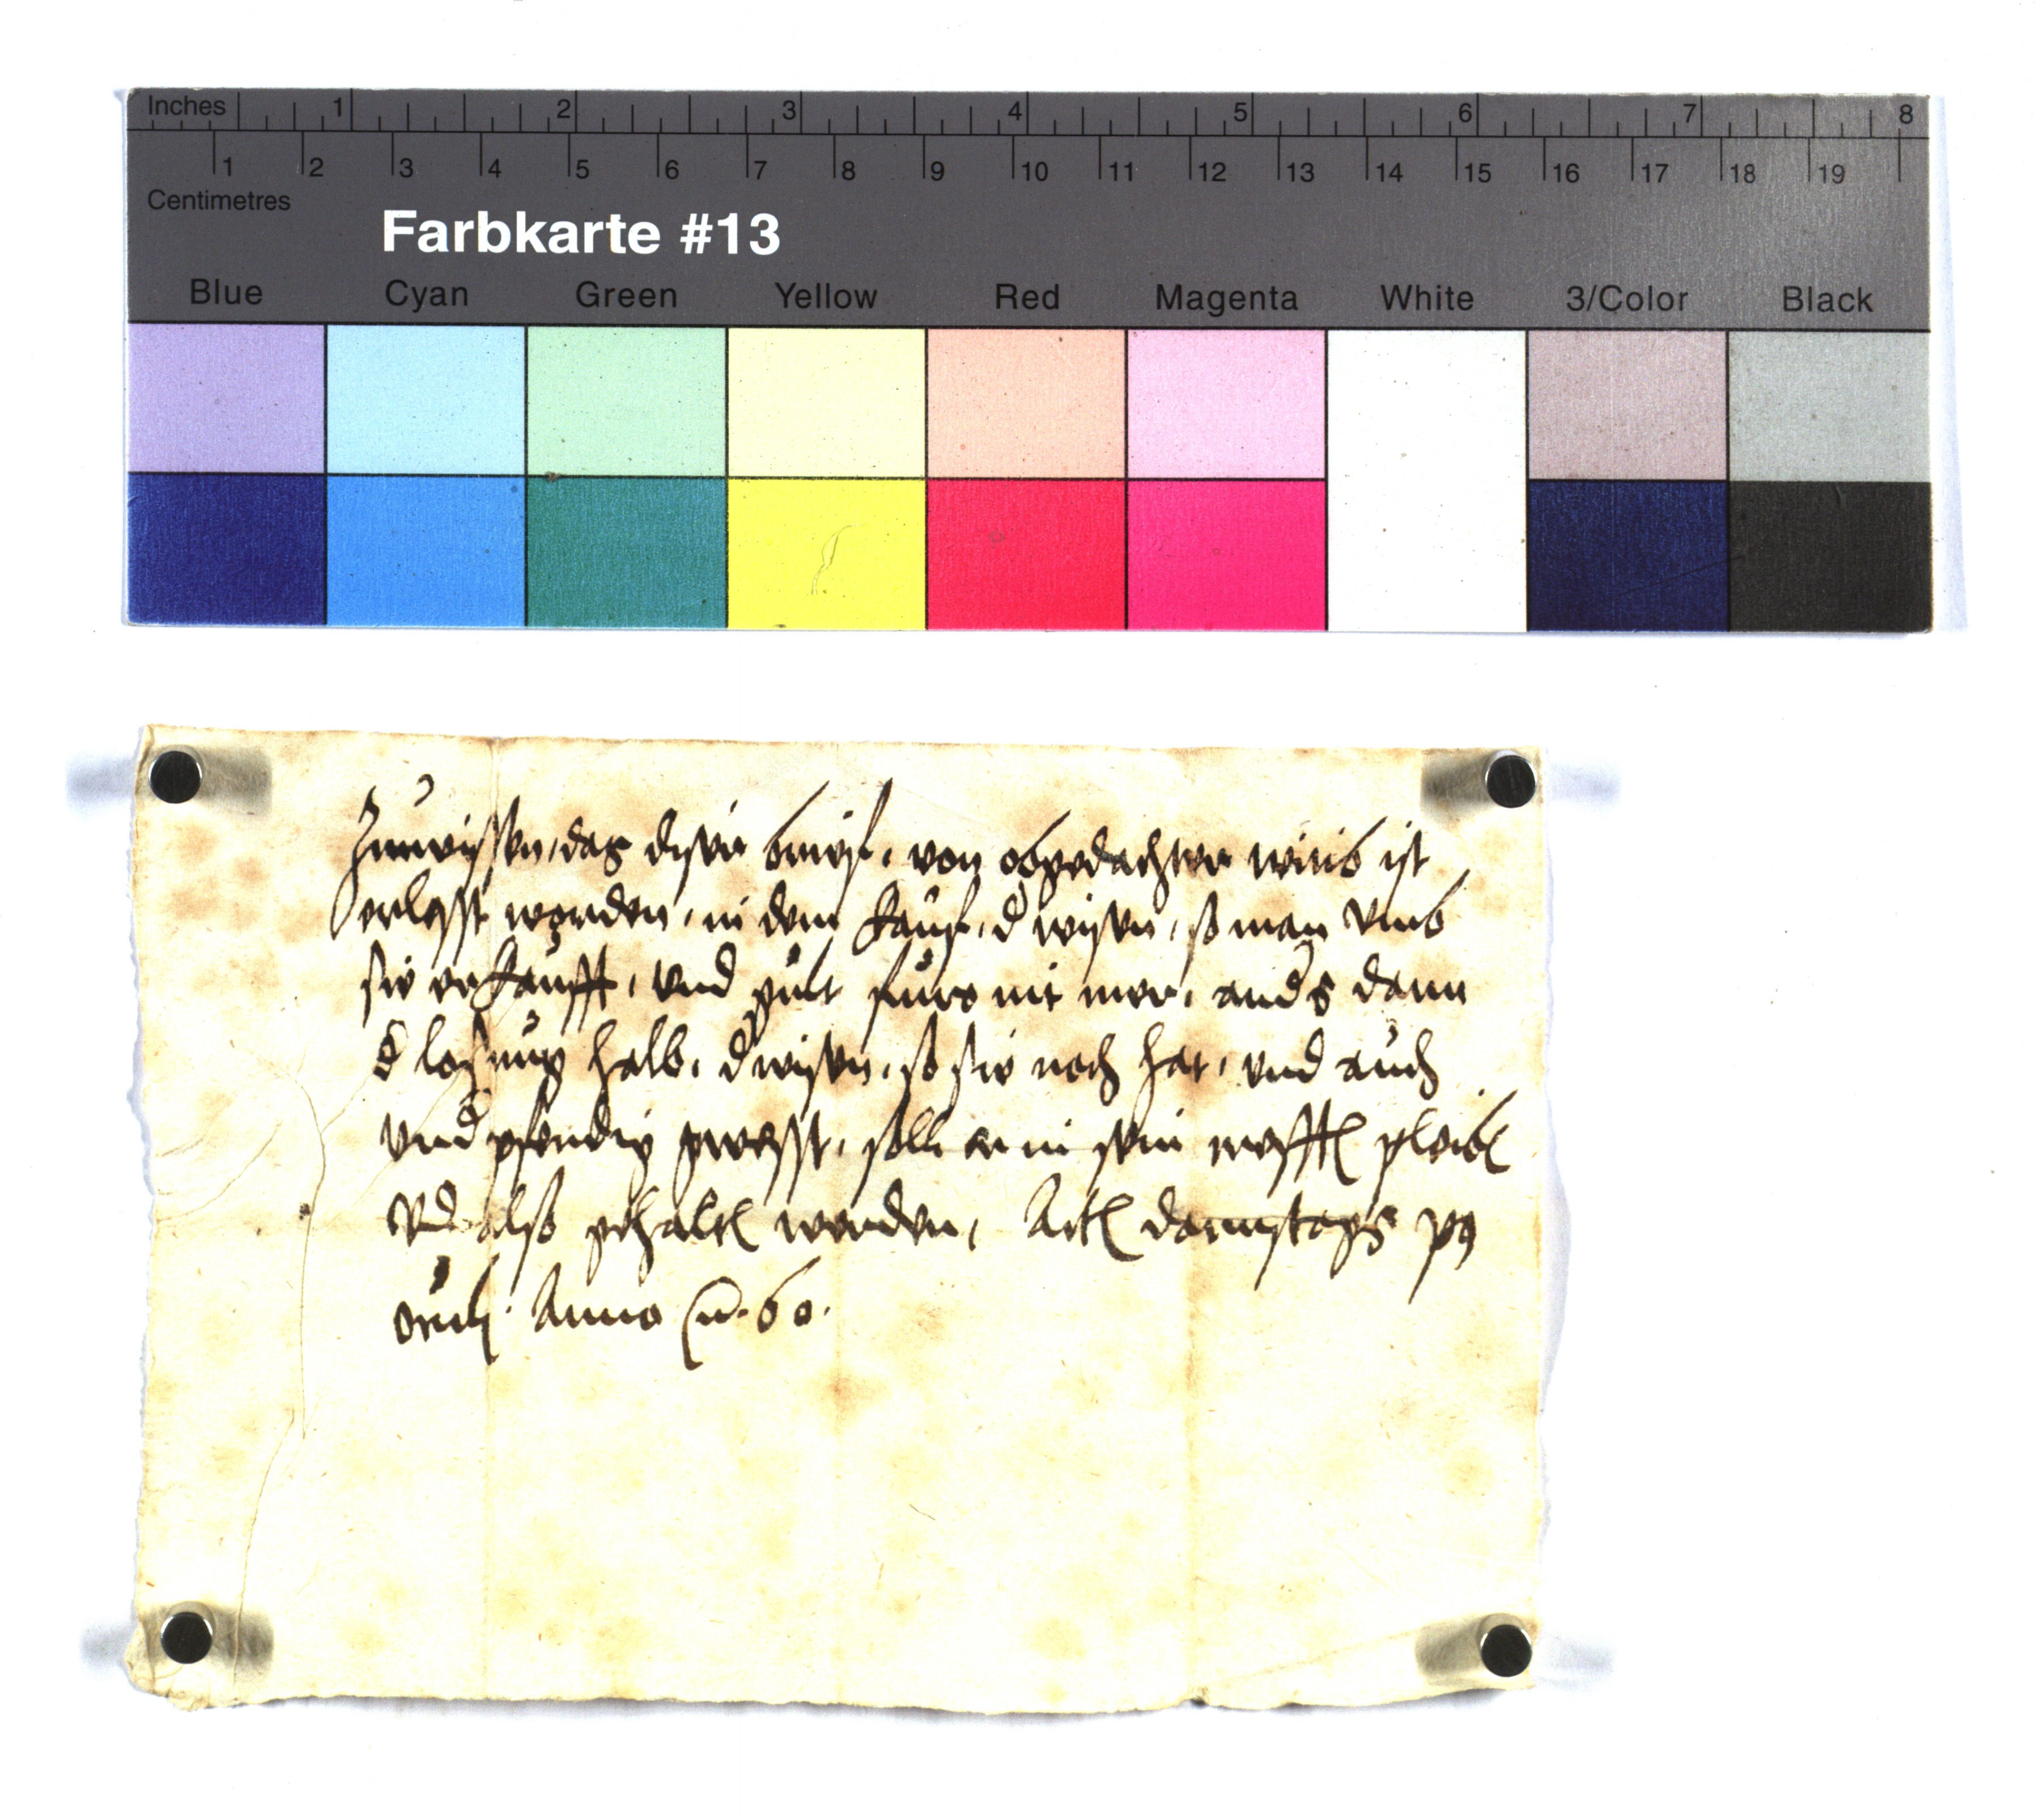 Inches 1 2 3 4 5 6 7 8
1 2 3 4 5 6 7 8 9 10 11 12 13 14 15 16 17 18 19
Centimetres
Farbkarte #13
Blue Cyan Green Yellow Red Magenta White 3/Color Black
Zuwissen, das diser brieff, von obgedachter wirib ist
erlosst worden, in dem kauff, d wisen, so man vmb
sie erkaufft, vnd gült füro nit mer, anders dann
d losung halb, d wisen, so sie noch hat, und auch
vnd pfendig gwesst, soll er in sein
vnd also gehalten werden, Act
Anno 60.